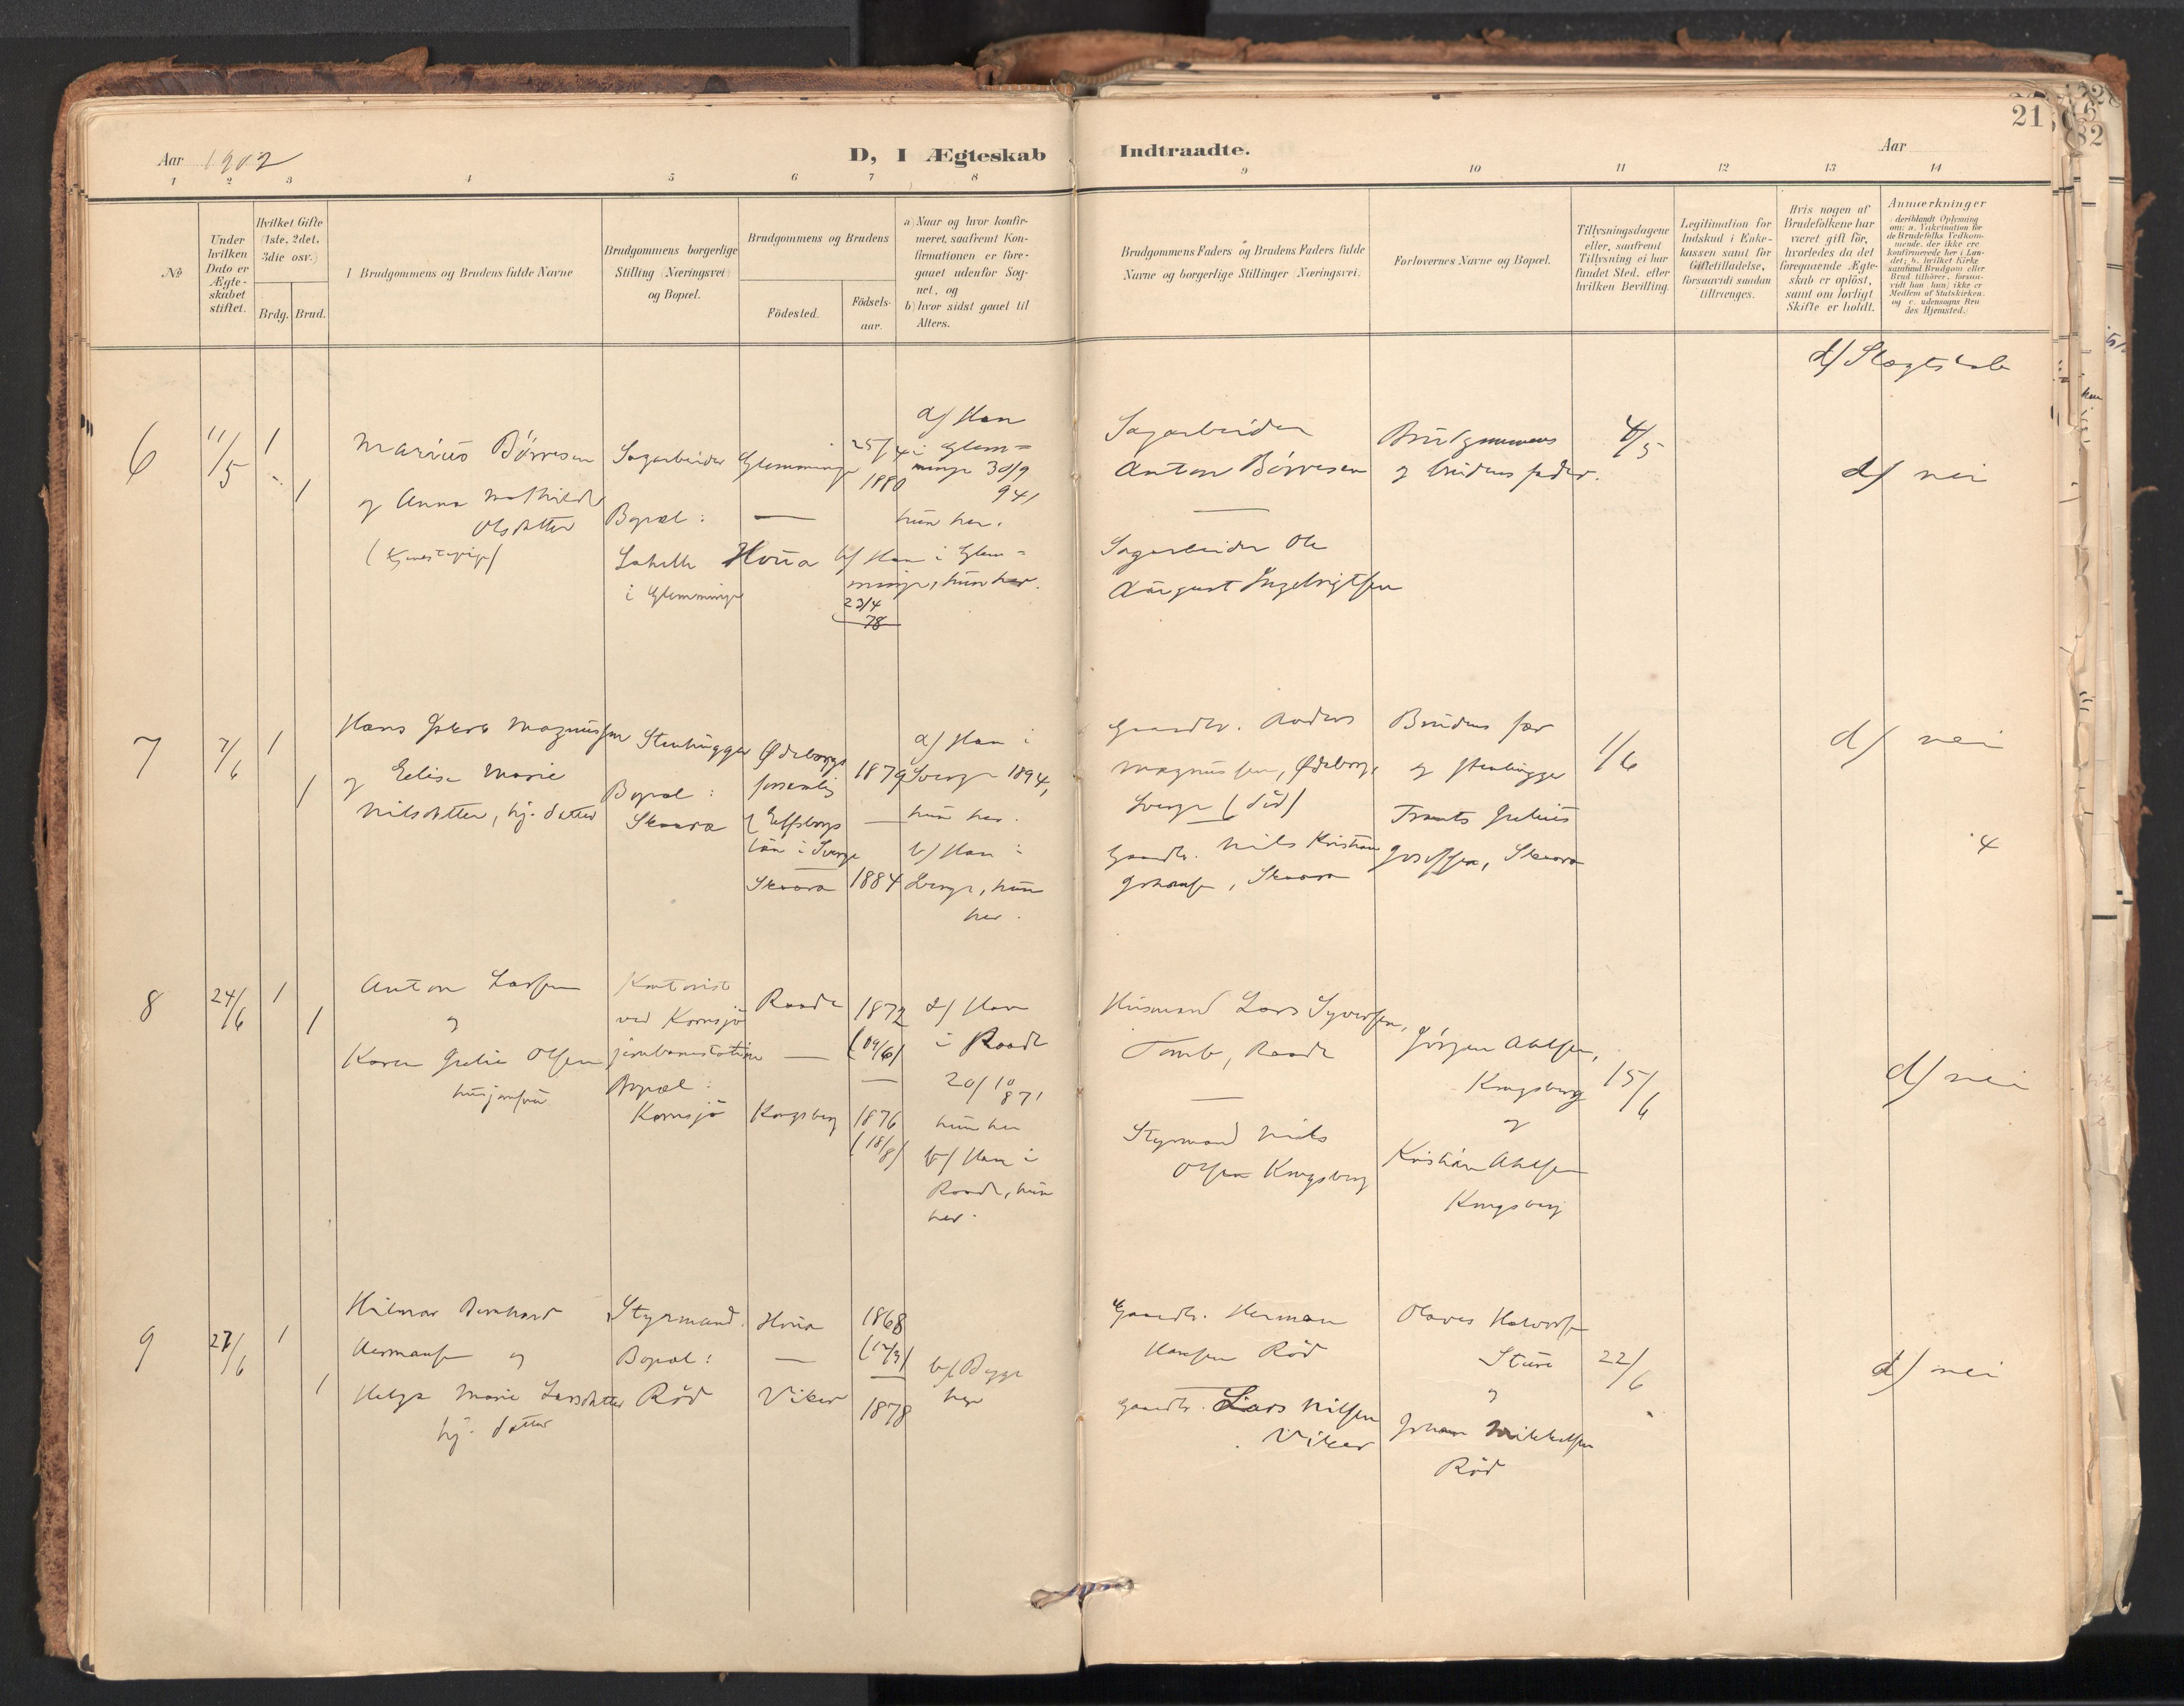 21
Aar 1902
D, I Ægteskab Indtraadte.
Aar
1 2 3 4 5 6 7 8 9 10 11 12 13 14
№
Under hvilken Dato er Ægteskabet stiftet.
Hvilket Gifte (1ste, 2det, 3die osv.)
Brdg. Brud.
1 Brudgommens og Brudens fulde Navne
Brudgommens borgerlige Stilling (Næringsvei) og Bopæl.
Brudgommens og Brudens
Fødested.
Fødsels-aar.
a) Naar og hvor konfirmeret, saafremt Konfirmationen er foregaaet udenfor Sognet, og
b) hvor sidst gaaet til Alters.
Brudgommens Faders og Brudens Faders fulde Navne og borgerlige Stillinger (Næringsvei).
Forlovernes Navne og Bopæl.
Tillysningsdagene eller, saafremt Tillysning ei har fundet Sted, efter hvilken Bevilling.
Legitimation for Indskud i Enkekassen samt for Giftetilladelse, forsaavidt saadan tiltrænges.
Hvis nogen af Brudefolkene har været gift før, hvorledes da det foregaaende Ægteskab er opløst, samt om lovligt Skifte er holdt.
Anmærkninger (deriblandt Oplysning om: a. Vakcination for de Brudefolks Vedkommende, der ikke ere konfirmerede her i Landet; b. hvilket Kirkesamfund Brudgom eller Brud tilhører, forsaavidt han (hun) ikke er Medlem af Statskirken, og c. udensogns Brudes Hjemsted.)
d/ Slægtskab
6
11/5
1
1
Marius Börresen
og Anna Mathilde
Olsdatter
(tjenestepige)
Sagarbeider
Bopæl:
i Glemminge
Glemminge
Hvia
25/4
1880
23/4
78
a/ Han
i Glem=
minge 30/9
94,
hun her.
b/ Han i Glem=
minge, hun her.
Sagarbeider
Anton Börresen
Sagarbeider Ole
August Ingebrigtsen
Brudgommens
og brudens fader.
4/5
d/ nei
7
7/6
1
1
Hans Jakob Magnussen
og Elise Marie
Nilsdatter, hj. datter
Stenhugger
Bopæl:
Skaara
Ødeborgs
forsamling
Elfsborgs
län i Sverge
Skaara
1879
1884
a/ Han i
Sverge 1894,
hun her.
b/ Han i
Sverge, hun
her.
Gaardbr. Anders
Magnussen, Ødeborg,
Sverge (död)
Gaardbr. Nils Kristian
Johansen, Skaara
Brudens far
og stenhugger
Frants Julius
Josefsen, Skaara
1/6
d/ nei
4
8
24/6
1
1
Anton Larsen
og
Karen Julie Olsen
husjomfru
Kontorist
ved Kornsjö
jernbanestation
Bopæl:
Kornsjö
Raade
Kongsberg
1872
(09/6)
1876
(18/8)
a/ Han
i Raade
20/10
87,
hun her
b/ Han i
Raade, hun
her.
Husmand Lars Syversen,
Tomb, Raade
Styrmand Nils
Olsen Kongsberg
Jörgen Ahlsen,
Kongsberg
og
Kristian Ahlsen
Kongsberg
15/6
d/ nei
9
27/6
1
1
Hilmar Bernhard
Hermansen og
Helga Marie Larsdatter
hj. datter
Styrmand
Bopæl:
Röd
Hvia
Viker
1868
(12/9)
1878
b/ Begge
her
Gaardbr. Herman
Hansen Röd
Gaardbr. Lars Nilsen
Viker
Olaves Halvorsen
Sture
og
Johan Mikkelsen
Röd
22/6
d/ nei